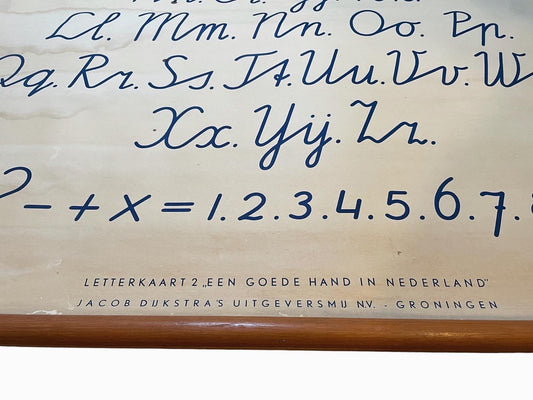 Ll. Mm. Nn. Oo. Pp.
Qq. Rr. Ss. Tt. Uu. Vv. W
Xx. Yij. Zz.
? - + x = 1. 2. 3. 4. 5. 6. 7. 8
LETTERKAART 2 „EEN GOEDE HAND IN NEDERLAND"
JACOB DIJKSTRA'S UITGEVERSMIJ N.V. - GRONINGEN